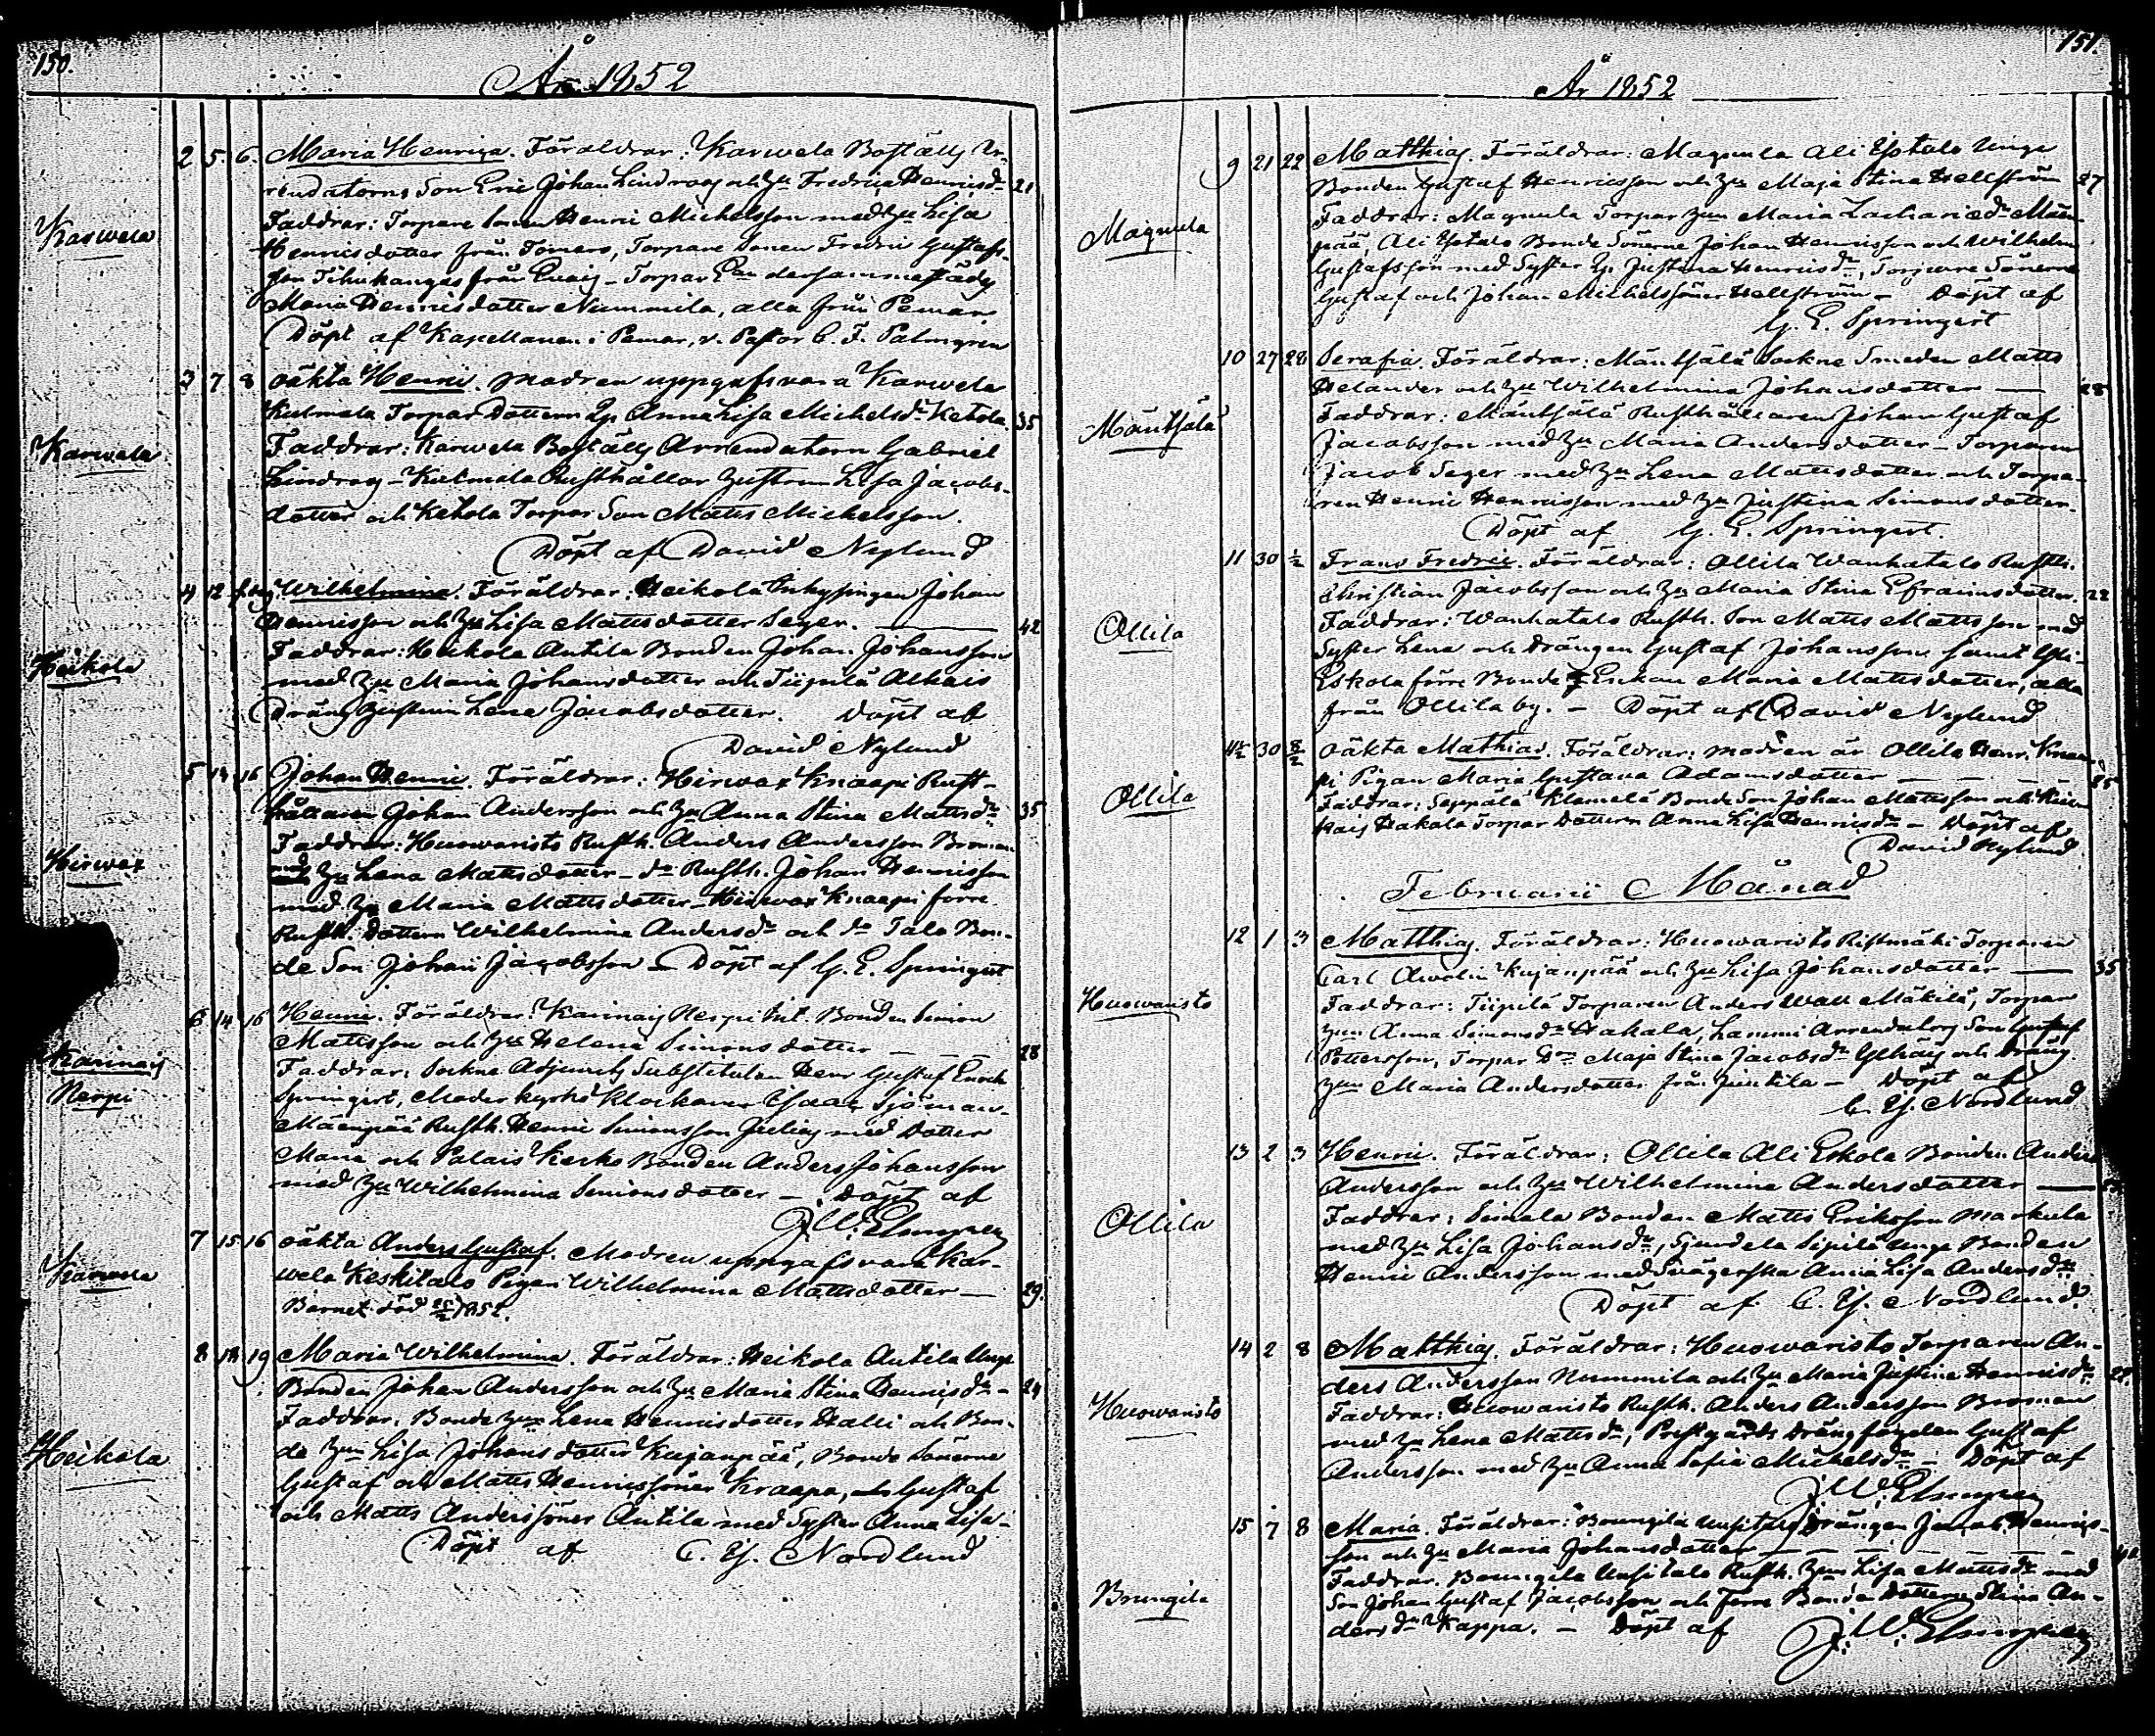 150.
År 1852
Karwela
2 5 6. Maria Henrica. Föräldrar: Karwela Boställs Ar-
rendatorns Son Eric Johan Lindroos och Hu Fredrica Henricsdr 21
Faddrar: Torpare Sonen Henric Michelsson med Hu Lisa
Henricsdotter från Tomero, Torpare Sonen Fredric Gustafs-
son Tihukangas från Evais - Torpar Dan dersammastädes
Maria Henricsdotter Nummila, alla från Pemar.
Döpt af Kapellanen i Pemar, v. Pastor C. F. Palmgren
Karwela
3 7 8 oäkta Henric. modren uppgafs vara Karwela
Kulmala Torpar Dottern Qp. Anna Lisa Michelsdr Ketola 35
Faddrar: Karwela Boställs Arrendatorn Gabriel
Lindroos - Kulmala Rusthållar Hustrun Lisa Jacobs-
dotter och Ketola Torpar Son Matts Michelsson.
Döpt af David Nylund
Heikola
4 12 Wilhelmina. Föräldrar: Heikola Inhysingen Johan
Henricsson och Hu Lisa Mattsdotter Seger. 42
Faddrar: Heikola Antila Bonden Johan Johansson
med Hu Maria Johansdotter och Tiipilä Alhais
Dräng Hustrun Lena Jacobsdotter. Döpt af
David Nylund
Hirwax
5 14 16 Johan Henric. Föräldrar: Hirwax Knaapi Rust-
hållaren Johan Andersson och Hu Anna Stina Mattsdr 35
Faddrar: Huowaristo Rusth. Anders Andersson Broman
med Hu Lena Mattsdotter - do Rusth. Johan Henricsson
med Hu Maria Mattsdotter - Hirwax Knaapi förre
Rusth. Dottern Wilhelmina Andersdr och do Talo Bon-
de Son Johan Jacobsson - Döpt af G. E. Springert
Karinais
Nerpi
6 14 16 Henric. Föräldrar: Karinais Nerpi Bonden Simon
Mattsson och Hu Helena Simonsdotter 28
Faddrar: Sockne Adjuncts Substituten Herr Gustaf Enoch
Springert, Moderkyrko Klockaren Isaac Sjöman -
Mäenpää Rusth. Henric Simonsson Julin med Dotter
Maria och Palais Kerko Bonden Anders Johansson
med Hu Wilhelmina Simonsdotter - Döpt af
J. W. Elmgren
Karwela
7 15 16 oäkta Anders Gustaf. Modren uppgafs vara Kar-
wela Keskitalo Pigan Wilhelmina Mattsdotter 29.
Barnet död 1852.
Heikola
8 18 19 Maria Wilhelmina. Föräldrar: Heikola Antila Unge
Bonden Johan Andersson och Hu Maria Stina Henricsdr - 24
Faddrar. Bonde Hun Lena Henricsdotter Halli och Bon-
de Hun Lisa Johansdotter Kujanpää, Bonde Sönerne
Gustaf och Matts Henricssöner Kraapa, och Gustaf
och Matts Anderssöner Antila med Syster Anna Lisa -
Döpt af C. Ej. Nordlund
151.
År 1852
Magnula
9 21 22 Matthias. Föräldrar: Magnula Ali Isotalo Unge
Bonden Gustaf Henricsson och Hu Maja Stina Hellström 27
Faddrar: Magnula Torpar Hun Maria Zachariædr Mäen-
pää, Ali Isotalo Bonde Sönerne Johan Henricsson och Wilhelm
Gustafsson med Syster Qp. Justina Henricsdr, Torpare Sönerne
Gustaf och Johan Michelssöner Hellström - Döpt af
G. E. Springert
Mäntsälä
10 27 28 Serafia. Föräldrar: Mäntsälä Sockne Smeden Matts
Helander och Hu Wilhelmina Johansdotter 28
Faddrar: Mäntsälä Rusthållaren Johan Gustaf
Jacobsson med Hu Maria Andersdotter - Torparen
Jacob Seger med Hu Lena Mattsdotter och Torpa-
ren Henric Henricsson med Hu Justina Simonsdotter.
Döpt af G. E. Springert.
Ollila
11 30 1/2 Frans Fredric. Föräldrar: Ollila Wanhatalo Rusth.
Christian Jacobsson och Hu Maria Stina Efraimsdotter. 22
Faddrar: Wanhatalo Rusth. Son Matts Mattsson med
Syster Lena och Drängen Gustaf Johansson samt Yli-
Eskola förre Bonde Enkan Maria Mattsdotter, alla
från Ollila by. - Döpt af David Nylund
Ollila
11½ 30 8/2 oäkta Mathias. Föräldrar: modren är Ollila Henr. Knaa-
pi Pigan Maria Gustava Adamsdotter 25
Faddrar: Seppälä Klemelä Bonde Son Johan Mattsson och
Hakala Torpar Dottern Anna Lisa Henricsdr - Döpt af
David Nylund
Februarii Månad
Huowaristo
12 1 3 Matthias. Föräldrar: Huowaristo Ristimäki Torparen
Carl Awelin Kujanpää och Hu Lisa Johansdotter 35
Faddrar: Tiipilä Torparen Anders Wall Mäkilä, Torpar
Hun Anna Simonsdr Hakala, Lammi Arrendators Son Gustaf
Pettersson, Torpar Dn Maja Stina Jacobsdr och Dräng
Hun Maria Andersdotter från Juntila - Döpt af
C. Ej. Nordlund
Ollila
13 2 3 Henric. Föräldrar: Ollila Ali Eskola Bonden Anders
Andersson och Hu Wilhelmina Andersdotter
Faddrar: Simala Bonden Matts Eriksson Markula
med Hu Lisa Johansdr, Sjundela Sipilä Unge Bonden
Henric Andersson med Svägerska Anna Lisa Andersdr
Döpt af C. Ej. Nordlund.
Huowaristo
14 2 8 Matthias. Föräldrar: Huowaristo Torparen An-
ders Andersson Nummila och Hu Maria Justina Henricsdr 28.
Faddrar: Huowaristo Rusth. Anders Andersson Broman
med Hu Lena Mattsdr, Prestgårds Drängfogden Gustaf
Andersson med Hu Anna Sofia Michelsdr - Döpt af
J. W. Elmgren
Brungila
15 7 8 Maria. Föräldrar: Brungila Uusitalo Drängen Jacob Henrics-
son och Hu Maria Johansdotter
Faddrar. Brungila Uusitalo Rusth. Hun Lisa Mattsdr med
Son Johan Gustaf Jacobsson och Förre Bonde Dottern Stina An-
dersdr Kappa. - Döpt af J. W. Elmgren